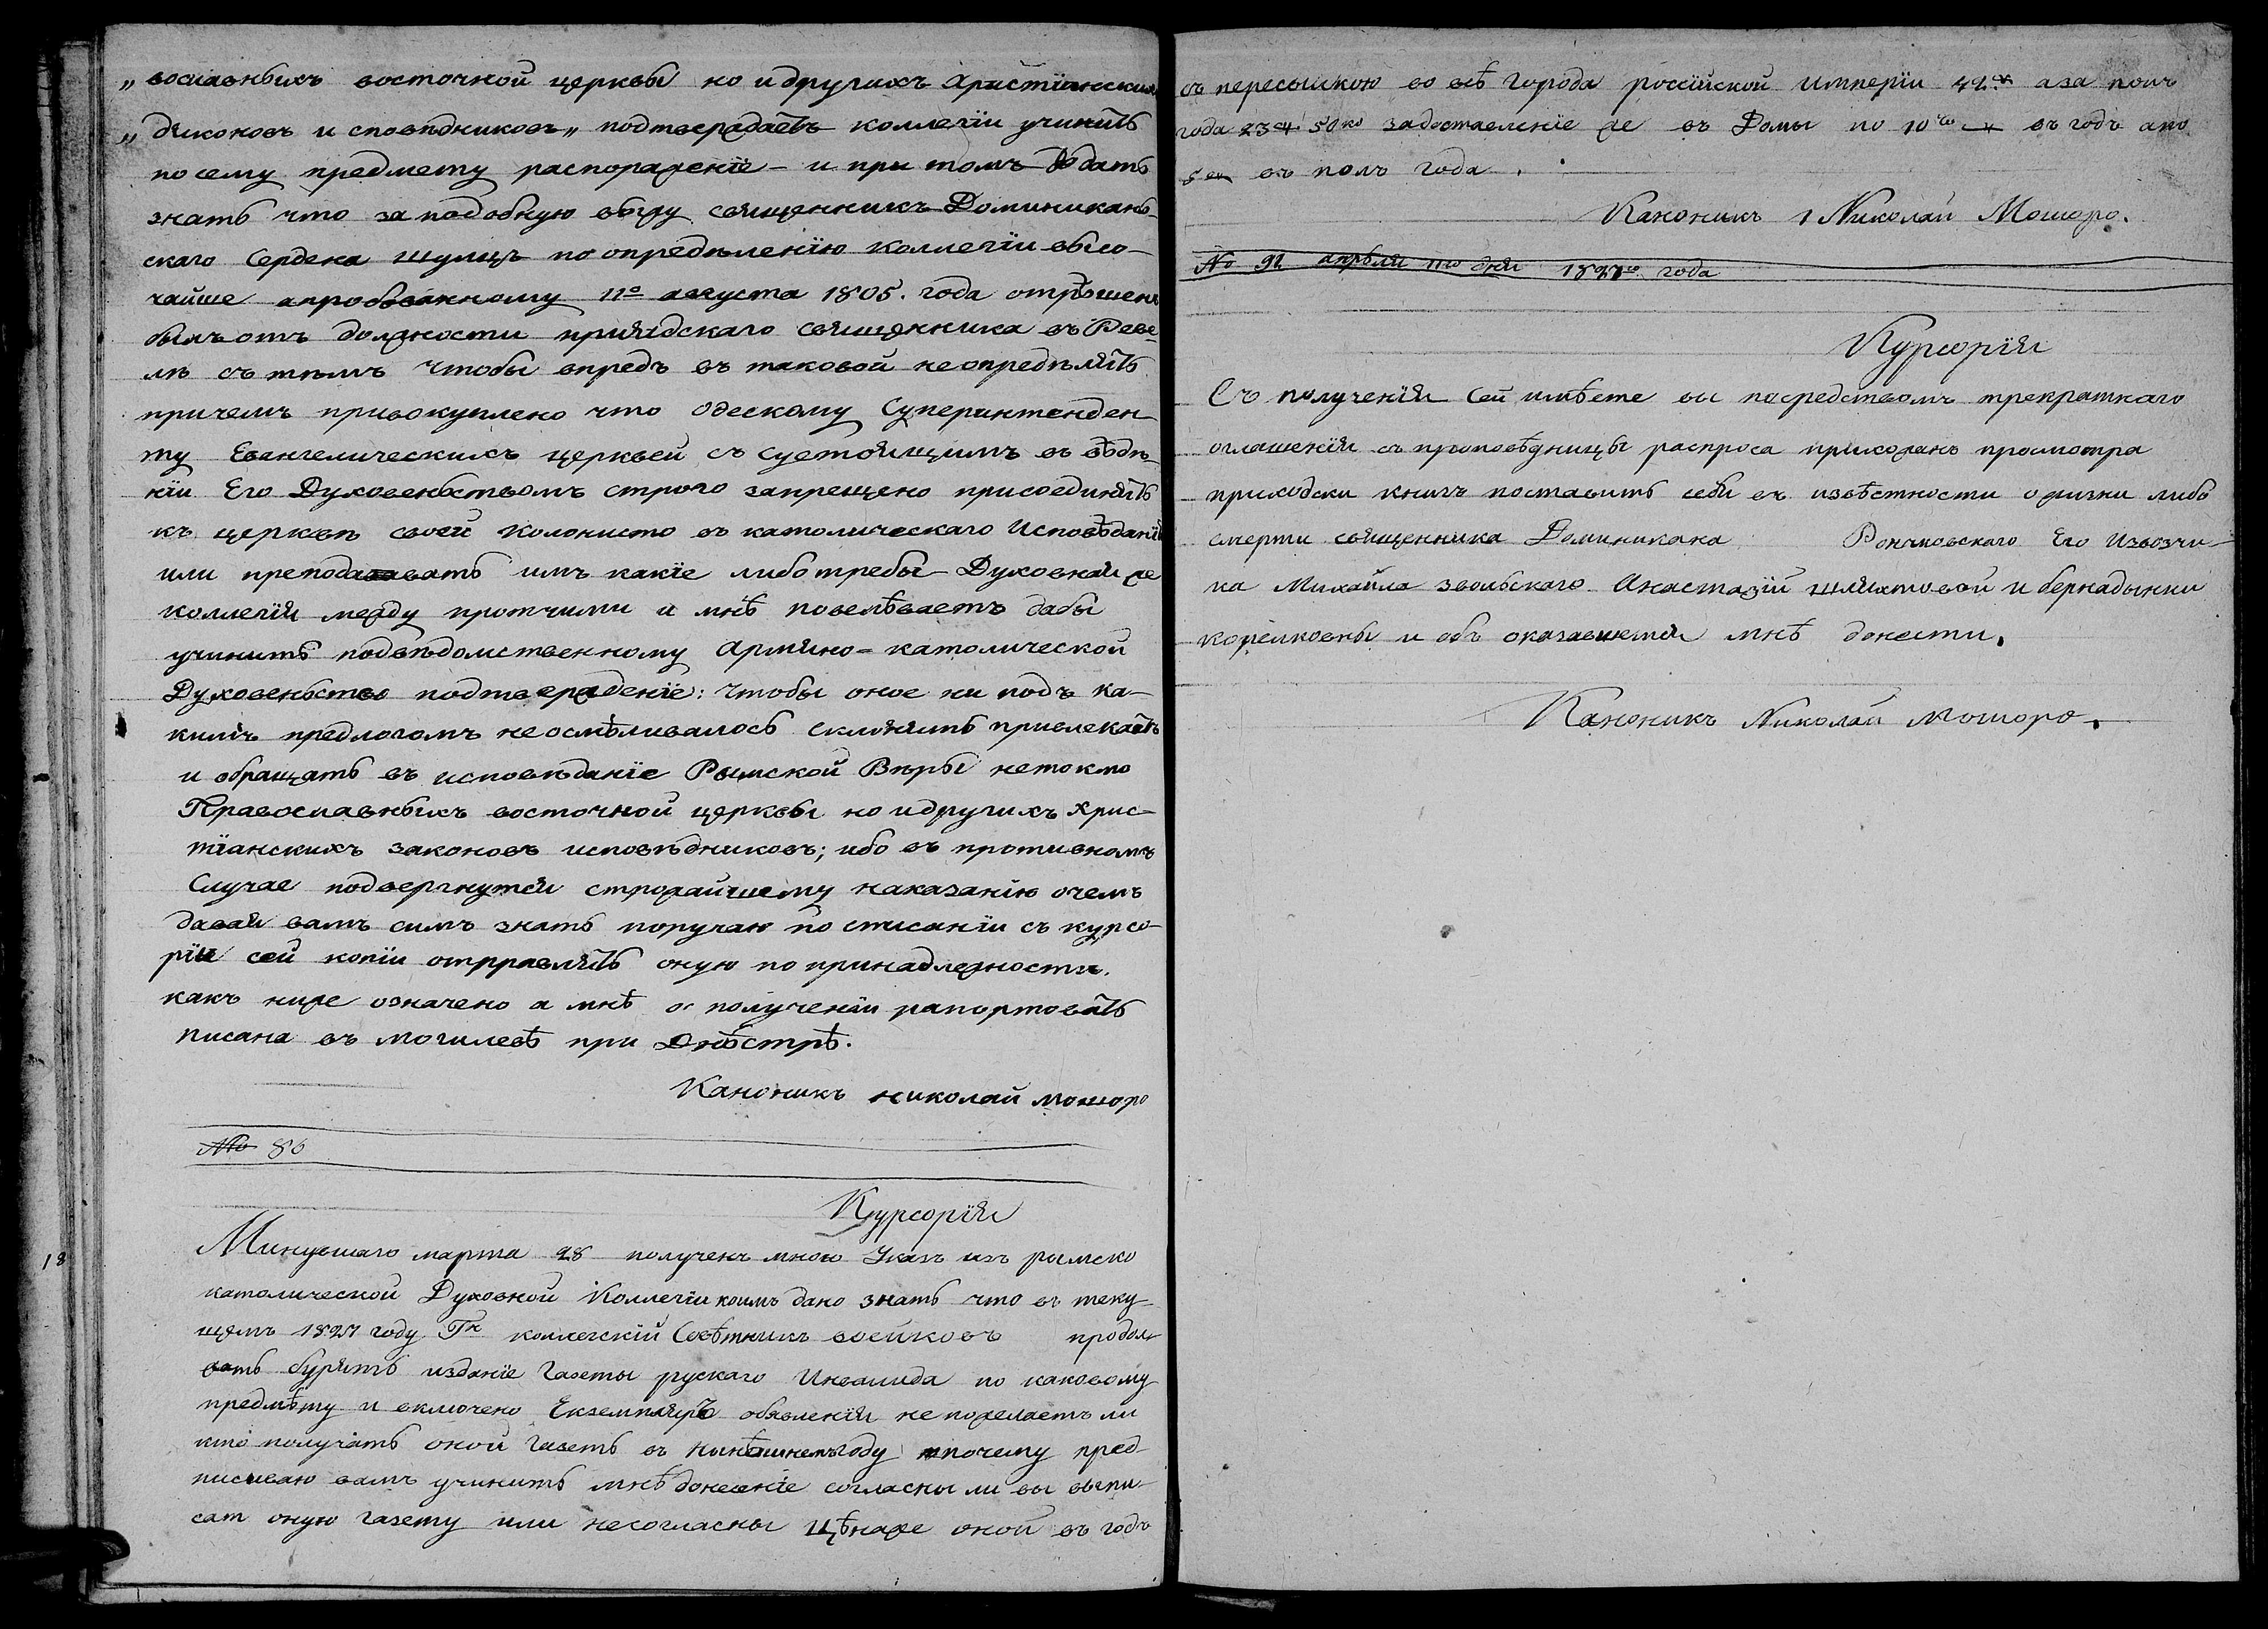 „вославныхъ восточной церквы но и другихъ Христїянских
„дяконовъ и сповѣдниковъ„ подтвераждать коллегїи учинить
по сему предмету распоряженїе – и при томъ дать
знать что за подобную священникъ Доминикань-
скаго Сердена Шульцъ по опредѣленїю коллегїи высо-
чайше апробованному 11го августа 1805. года отрѣшенъ
былъ отъ должности прихадскаго священника въ Реве-
лѣ съ тѣмъ чтобы впредъ въ таковой неопредѣлять
причемъ присокуплено что одескому Суперинтенден-
ту Евангелическихъ церквей съ суетоящимъ въ вѣдѣ-
нїи Его Духовенствомъ строго запрещено присоединять
къ церквѣ своей колонисто въ католическаго Исповѣданїя
или преподавать имъ какїе либо требы – Духовная же
коллегїя между протчими и мнѣ повелѣваетъ дабы
учинить подвѣдомственному Армяно=католической
Духовенство подтвераденїе: чтобы оное ни подъ ка-
кимъ предлогомъ неосмѣливалось склонять привлекать
и обращать въ исповѣданїе Рымской Вѣры нетокмо
Православныхъ восточной церквы но и другихъ хрис-
тїанскихъ законовъ исповѣдниковъ; ибо въ противномъ
Случае подвергнутся строжайшему наказанїю очемъ
давая вамъ симъ знать поручаю по списанїи съ курсо-
рїи сей копїи отправлять оную по принадлежности.
какъ ниже означено а мнѣ о полученїи рапортовать
писана въ могилевѣ при Днѣстрѣ.
Каноникъ николай мошоро
No 86
Курсорїя
Минувшаго марта 28 полученъ мною Указъ изъ рымско
католической Духовной Коллегїи коимъ дано знать что въ теку-
щемъ 1827 году Гн коллежскїй Совѣтникъ воейковъ продол
вать будить изданїе газеты рускаго Инвалида по каковому
предмѣту и включено Екземпляръ обявленїя не пожелаетъ ли
кто получать оной газеть въ нынѣшнемъ году почему пред-
писиваю вамъ учинить мнѣ донесенїе согласны ли вы выпи-
сат оную газету или несогласны Цѣнаже оной въ годъ
18
съ пересылкою во всѣ города россїйской империи 42 аза полъ
года 23 50ко за доставленїе же въ Домы по 10 въ годъ апо
5 въ полъ года.
Каноникъ Николай Мошоро.
No 92 апрѣля 11го дня 1827го года
Курсорїя
Съ полученїя сей имѣете вы посредствомъ трекратнаго
оглашенїя съ проповѣдницы распроса прихожанъ просмотра
приходски книгъ поставить себя въ извѣстности о жизни либо
смерти священника Доминикана Рончковскаго Его Извозчи-
ка Михайла звольскаго Анастазїй шляхтовой и бернадынки
корейковны и объ оказавшемся мнѣ донести.
Каноникъ Николай мошоро.